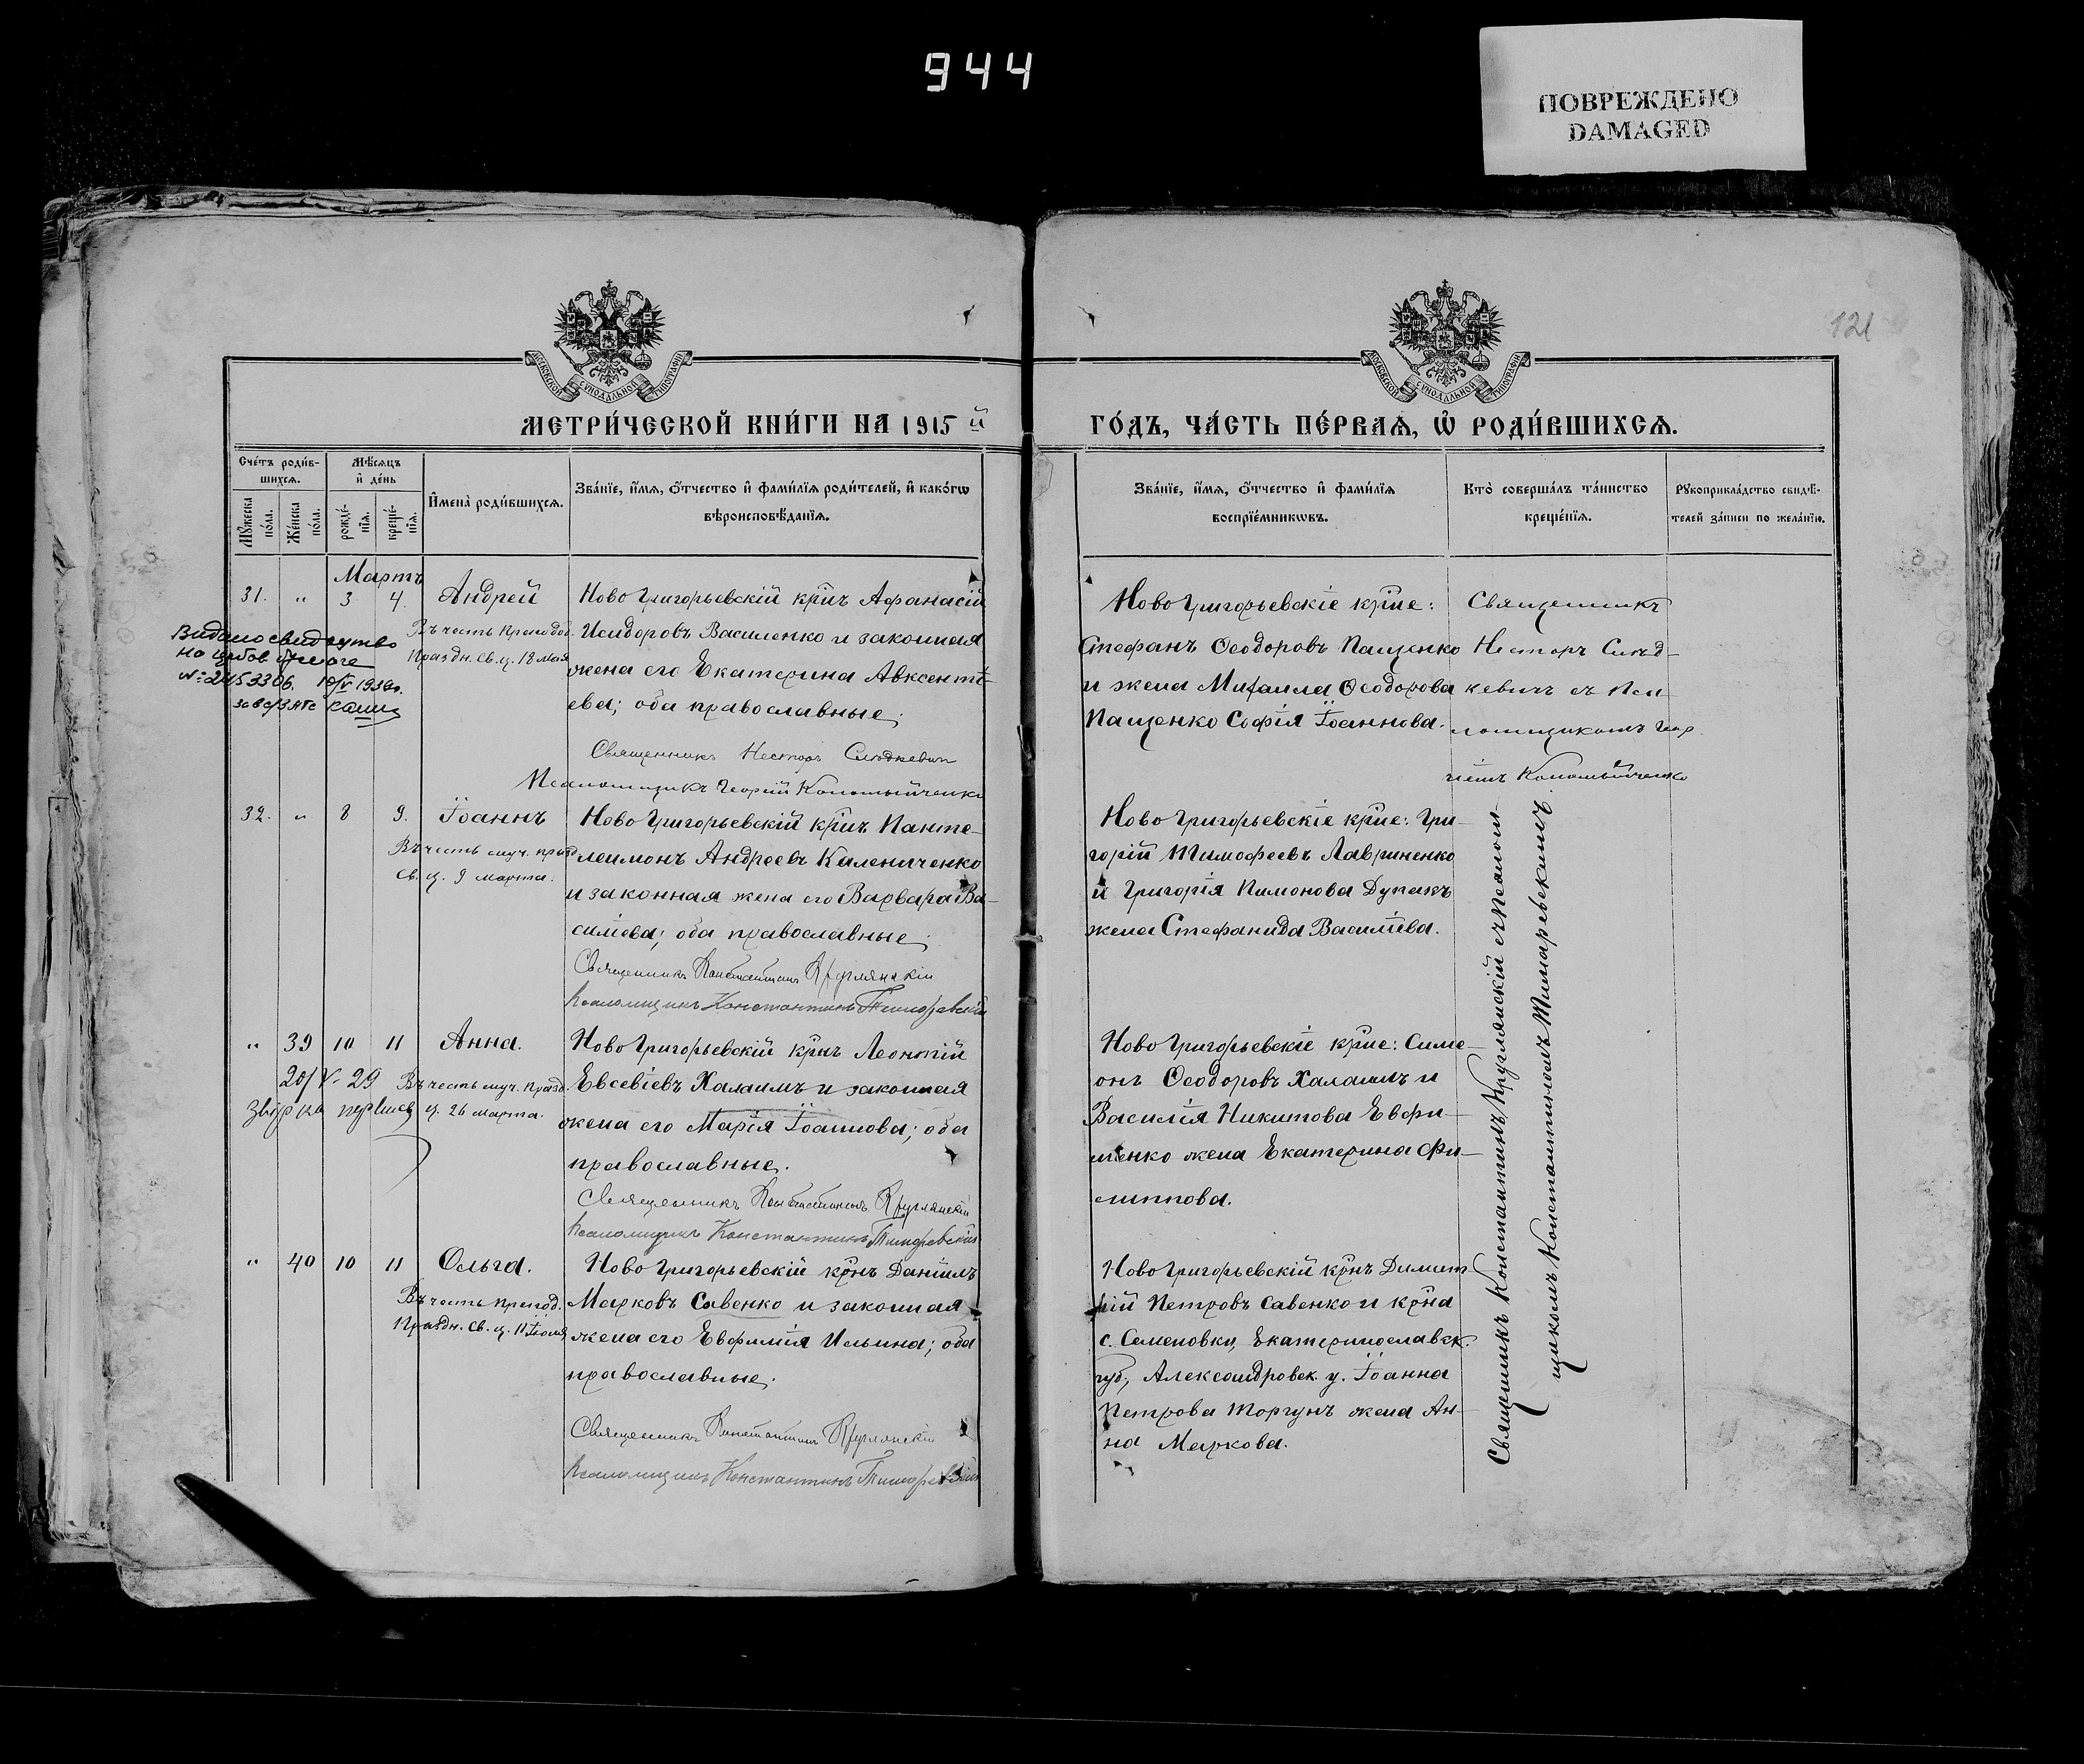 944
ПОВРЕЖДЕНО
DAMAGED
121
МОСКОВСКОЙ СУНОДАЛЬНОЙ ТИПОГРАФІИ
МОСКОВСКОЙ СУНОДАЛЬНОЙ ТИПОГРАФІИ
МЕТРИ́ЧЕСКОЙ КНИ́ГИ НА 1915 й
ГО́ДЪ, ЧА́СТЬ ПЕ́РВАѦ, Ѡ҆ РОДИ́ВШИХСѦ.
Сче́тъ роди́в-
шихсѧ.
Мѣ́сѧцъ
и҆ де́нь
Мꙋ́жеска
по́ла.
Же́нска
по́ла.
рожде́-
нїѧ.
креще́-
нїѧ.
И҆мена̀ роди́вшихсѧ.
Зва́нїе, и҆́мѧ, ѻ҆́тчество и҆ фами́лїѧ роди́телей, и҆ како́гѡ
вѣроисповѣ́данїѧ.
Зва́нїе, и҆́мѧ, ѻ҆́тчество и҆ фами́лїѧ
воспрїе́мникѡвъ.
Кто̀ соверша́лъ та́инство
креще́нїѧ.
Рꙋкоприкла́дство свидѣ́-
телей за́писи по жела́нїю.
Мартъ
31. " 3 4. Андрей
Въ честь преподоб.
Праздн. св. ц. 18 мая
Видано свидоцтво
№ 2453306. 10/V 193
Ново Григорьевскій крнъ Афанасій
Исидоровъ Василенко и законная
жена его Екатерина Авксентi-
ева; оба православные.
Священникъ Несторъ Сињдкевич
Псаломщикъ Георгій Коломыйченко
Ново Григорьевскіе крне:
Стефанъ Ѳеодоровъ Пащенко
и жена Михаила Ѳеодорова
Пащенко Софія Іоаннова.
Священникъ
Несторъ Сињд-
кевичъ съ Пса-
ломщикомъ Геор
гіемъ Коломыйченко
32. " 8 9. Іоаннъ
Въ честь муч. празд.
св. ц. 9 марта.
Ново Григорьевскій крнъ Панте-
леимонъ Андреевъ Калениченко
и законная жена его Варвара Ва-
силіева; оба православные.
Священникъ Константинъ Круглянскій
Псаломщикъ Константинъ Тимофевскій
Ново Григорьевскіе крне: Гри-
горій Тимофеевъ Лавриненко
и Григорія Пимонова Дупакъ
жена Стефанида Василіева.
" 39 10 11 Анна.
Въ честь муч. празд.
ц. 26 марта.
20/V-29
Ново Григорьевскій крнъ Леонтій
Евсевіевъ Халаимъ и законная
жена его Марія Іоаннова; оба
православные.
Священникъ Константинъ Круглянскій
Псаломщикъ Константинъ Тимофевскій
Ново Григорьевскіе крне: Симе-
онъ Ѳеодоровъ Халаимъ и
Василія Никитова Евфи-
менко жена Екатерина Фи-
липпова.
" 40 10 11 Ольга.
Въ честь препод.
Праздн. св. ц. 11 Іюля
Ново Григорьевскій крнъ Даніилъ
Марковъ Савенко и законная
жена его Евфимія Ильина; оба
православные.
Священникъ Константинъ Круглянскій
Псаломщикъ Константинъ Тимофевскій
Ново Григорьевскій крнъ Димит-
рій Петровъ Савенко и крна
с. Семеновки, Екатеринославск.
губ., Александровск. у. Іоанна
Петрова Торгунъ жена Ан-
на Маркова.
Священникъ Константинъ Круглянскій съ Псалом-
щикомъ Константиномъ